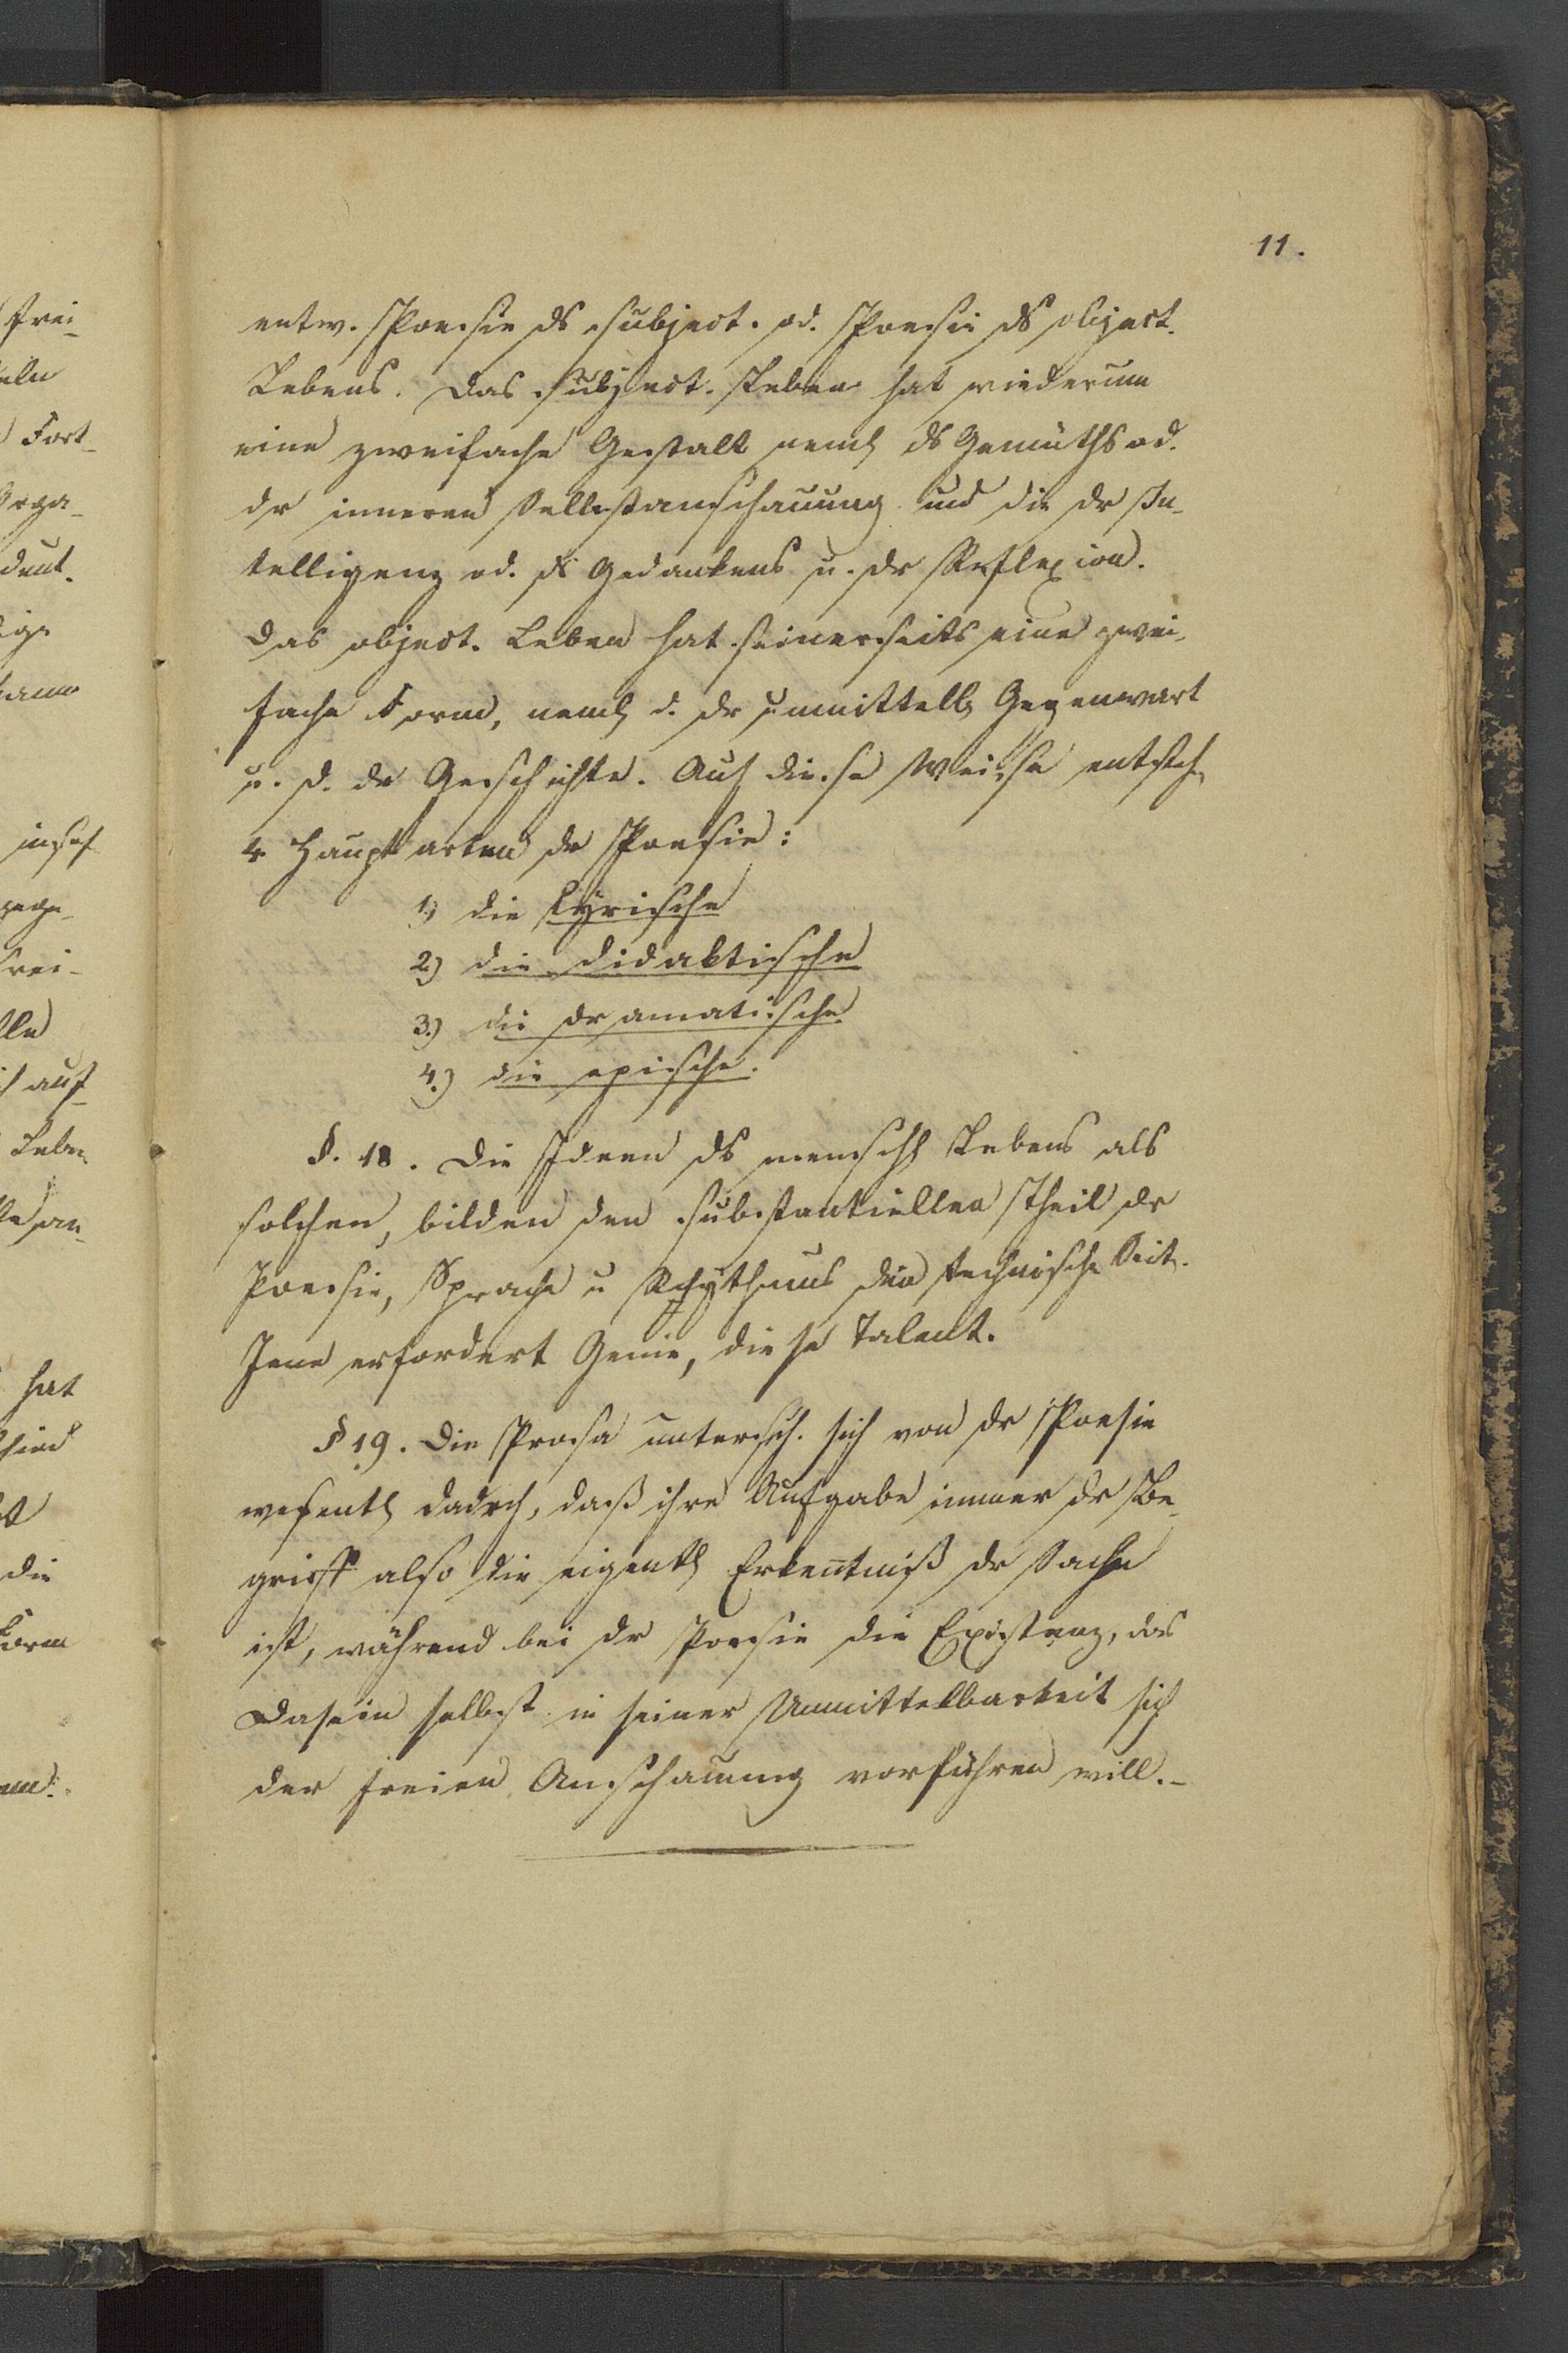 11.
entw. Poesie ds subject. od. Poesie ds object.
Lebens. Das subject. Leben hat wiederum
eine zweifache Gestalt neml ds Gemüths od.
dr inneren Selbstanschauung und die dr In-
telligenz od. ds Gedankens u. dr Reflexion.
Das object. Leben hat seinerseits eine zwei-
fache Form, neml d. dr unmittelb Gegenwart
u. d. dr Geschichte. Auf diese Weise entsteh
4 Hauptarten dr Poesie:
1) die lyrische
2.) die didaktische
3.) die dramatische
4.) die epische.
§. 18. Die Ideen ds menschl Lebens als
solchen, bilden den substantiellen Theil dr
Poesie, Sprache u Rhythmus die technische Seit.
Jene erfordert Genie, diese Talent.
§ 19. Die Prosa untersch. sich von dr Poesie
wesentl dadrch, daß ihre Aufgabe immer dr Be-
griff also die eigentl Erkentniß dr Sache
ist, während bei dr Poesie die Existenz, das
Dasein selbst in seiner Unmittelbarkeit sich
der freien Anschauung vorführen will.-
frei-
eln
Fort-
Orga-
deut.
auf-
Leben
hat
die
Form